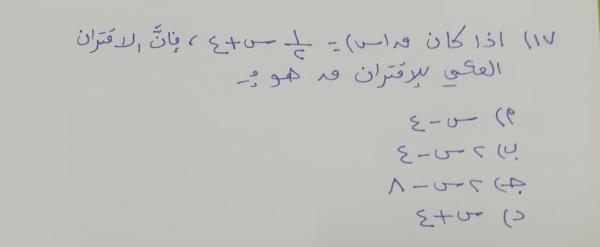 ١٧) اذا كان ق(س) = ١/٢ س + ٤ ، فإنَّ الاقتران
العكسي للإقتران ق هو :-
أ) س - ٤
ب) ٢ س - ٤
جـ) ٢ س - ٨
د) س + ٤